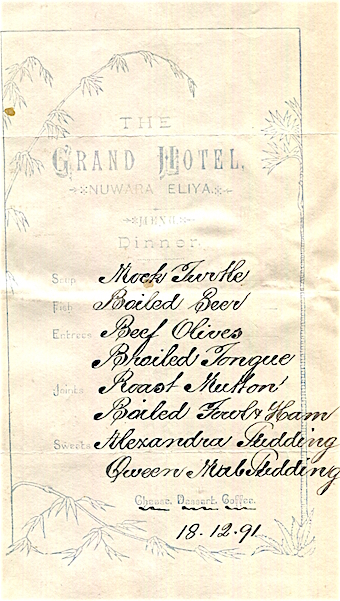 THE
GRAND HOTEL,
NUWARA ELIYA
MENU
Dinner.
Soup Mock Turtle
Fish Boiled Seer
Entrees Beef Olives
Broiled Tongue
Joints Roast Mutton
Boiled Fowl & Ham
Sweets Alexandra Pudding
Queen Mab Pudding
Cheese. Dessert. Coffee.
18.12.91